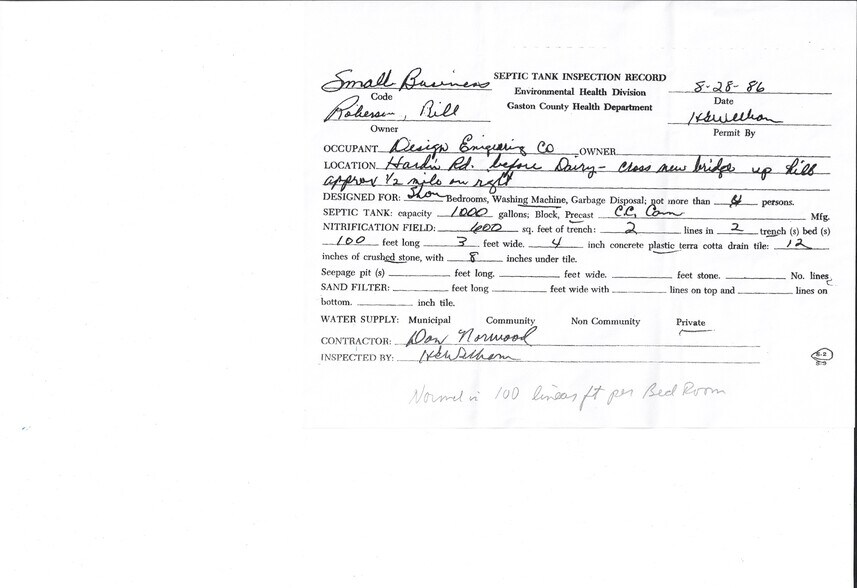 Small Business SEPTIC TANK INSPECTION RECORD 8-28-86
Code Environmental Health Division Date
Roberson, Bill Gaston County Health Department
Owner Permit By
OCCUPANT Design Enigiering Co OWNER
LOCATION Hardin Rd. before Dairy - cross new bridge up hill
approx 1/2 mile on right
DESIGNED FOR: Shop Bedrooms, Washing Machine, Garbage Disposal; not more than 4 persons.
SEPTIC TANK: capacity 1000 gallons; Block, Precast C.C. Mfg.
NITRIFICATION FIELD: 600 sq. feet of trench: 2 lines in 2 trench (s) bed (s)
100 feet long 3 feet wide. 4 inch concrete plastic terra cotta drain tile: 12
inches of crushed stone, with 8 inches under tile.
Seepage pit (s) feet long. feet wide. feet stone. No. lines
SAND FILTER: feet long feet wide with lines on top and lines on
bottom. inch tile.
WATER SUPPLY: Municipal Community Non Community Private
CONTRACTOR: Don Norwood
INSPECTED BY:
S-2
Normal is 100 lineas ft per Bed Room